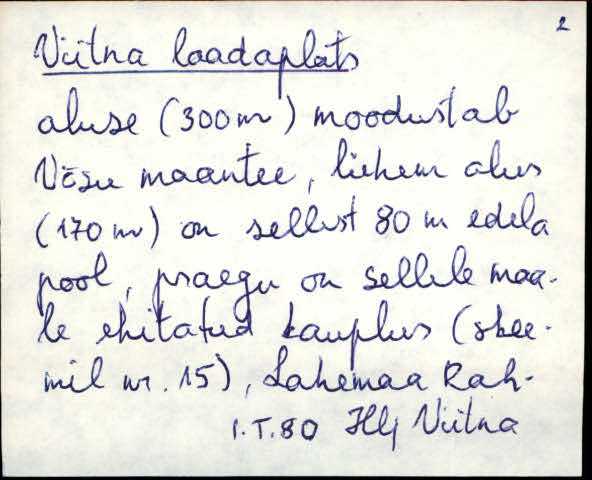 2
Viitna laadaplats
aluse (300m) moodustab
Võsu maantee, lühem alus
(170 m) on sellest 80 m edela
pool, praegu on sellele maa-
le ehitatud kauplus (skee-
mil nr. 15), Lahemaa Rah-
I.T.80 HlJ Viitna